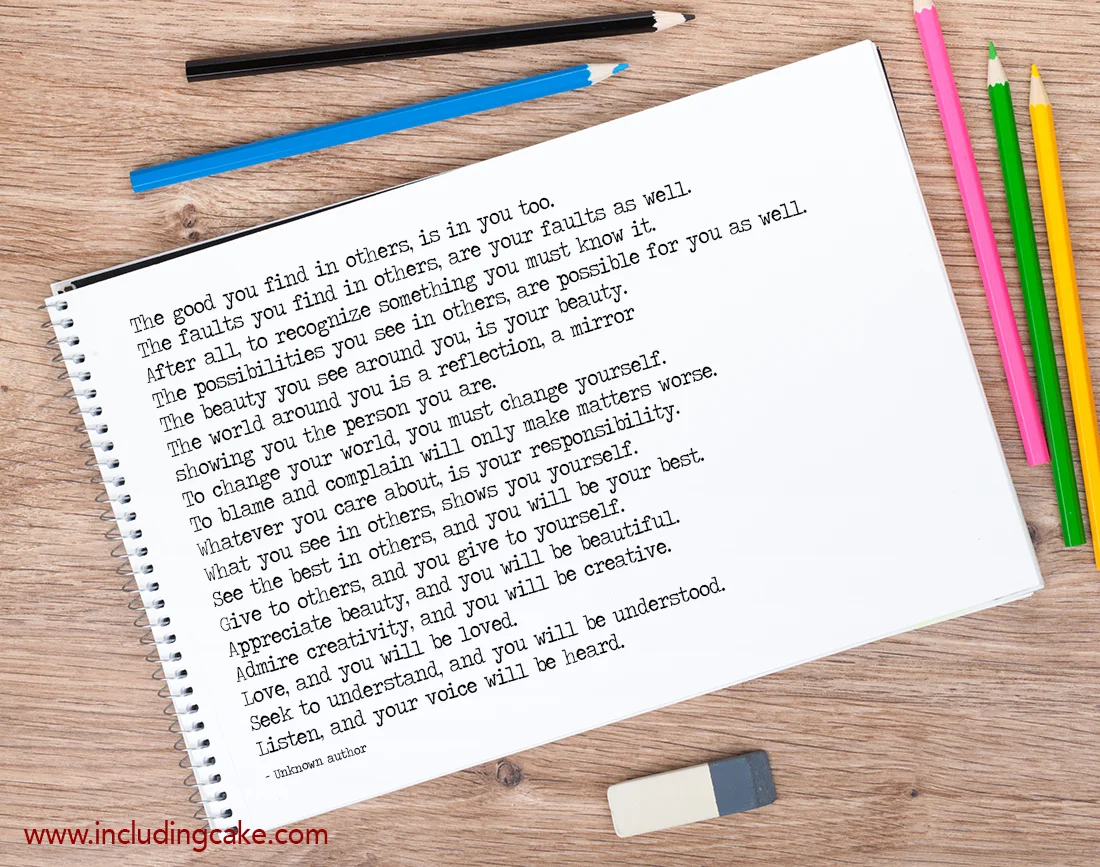 The good you find in others, is in you too.
The faults you find in others, are your faults as well.
After all, to recognize something you must know it.
The possibilities you see in others, are possible for you as well.
The beauty you see around you, is your beauty.
The world around you is a reflection, a mirror
showing you the person you are.
To change your world, you must change yourself.
To blame and complain will only make matters worse.
Whatever you care about, is your responsibility.
What you see in others, shows you yourself.
See the best in others, and you will be your best.
Give to others, and you give to yourself.
Appreciate beauty, and you will be beautiful.
Admire creativity, and you will be creative.
Love, and you will be loved.
Seek to understand, and you will be understood.
Listen, and your voice will be heard.
- Unknown author
www.includingcake.com